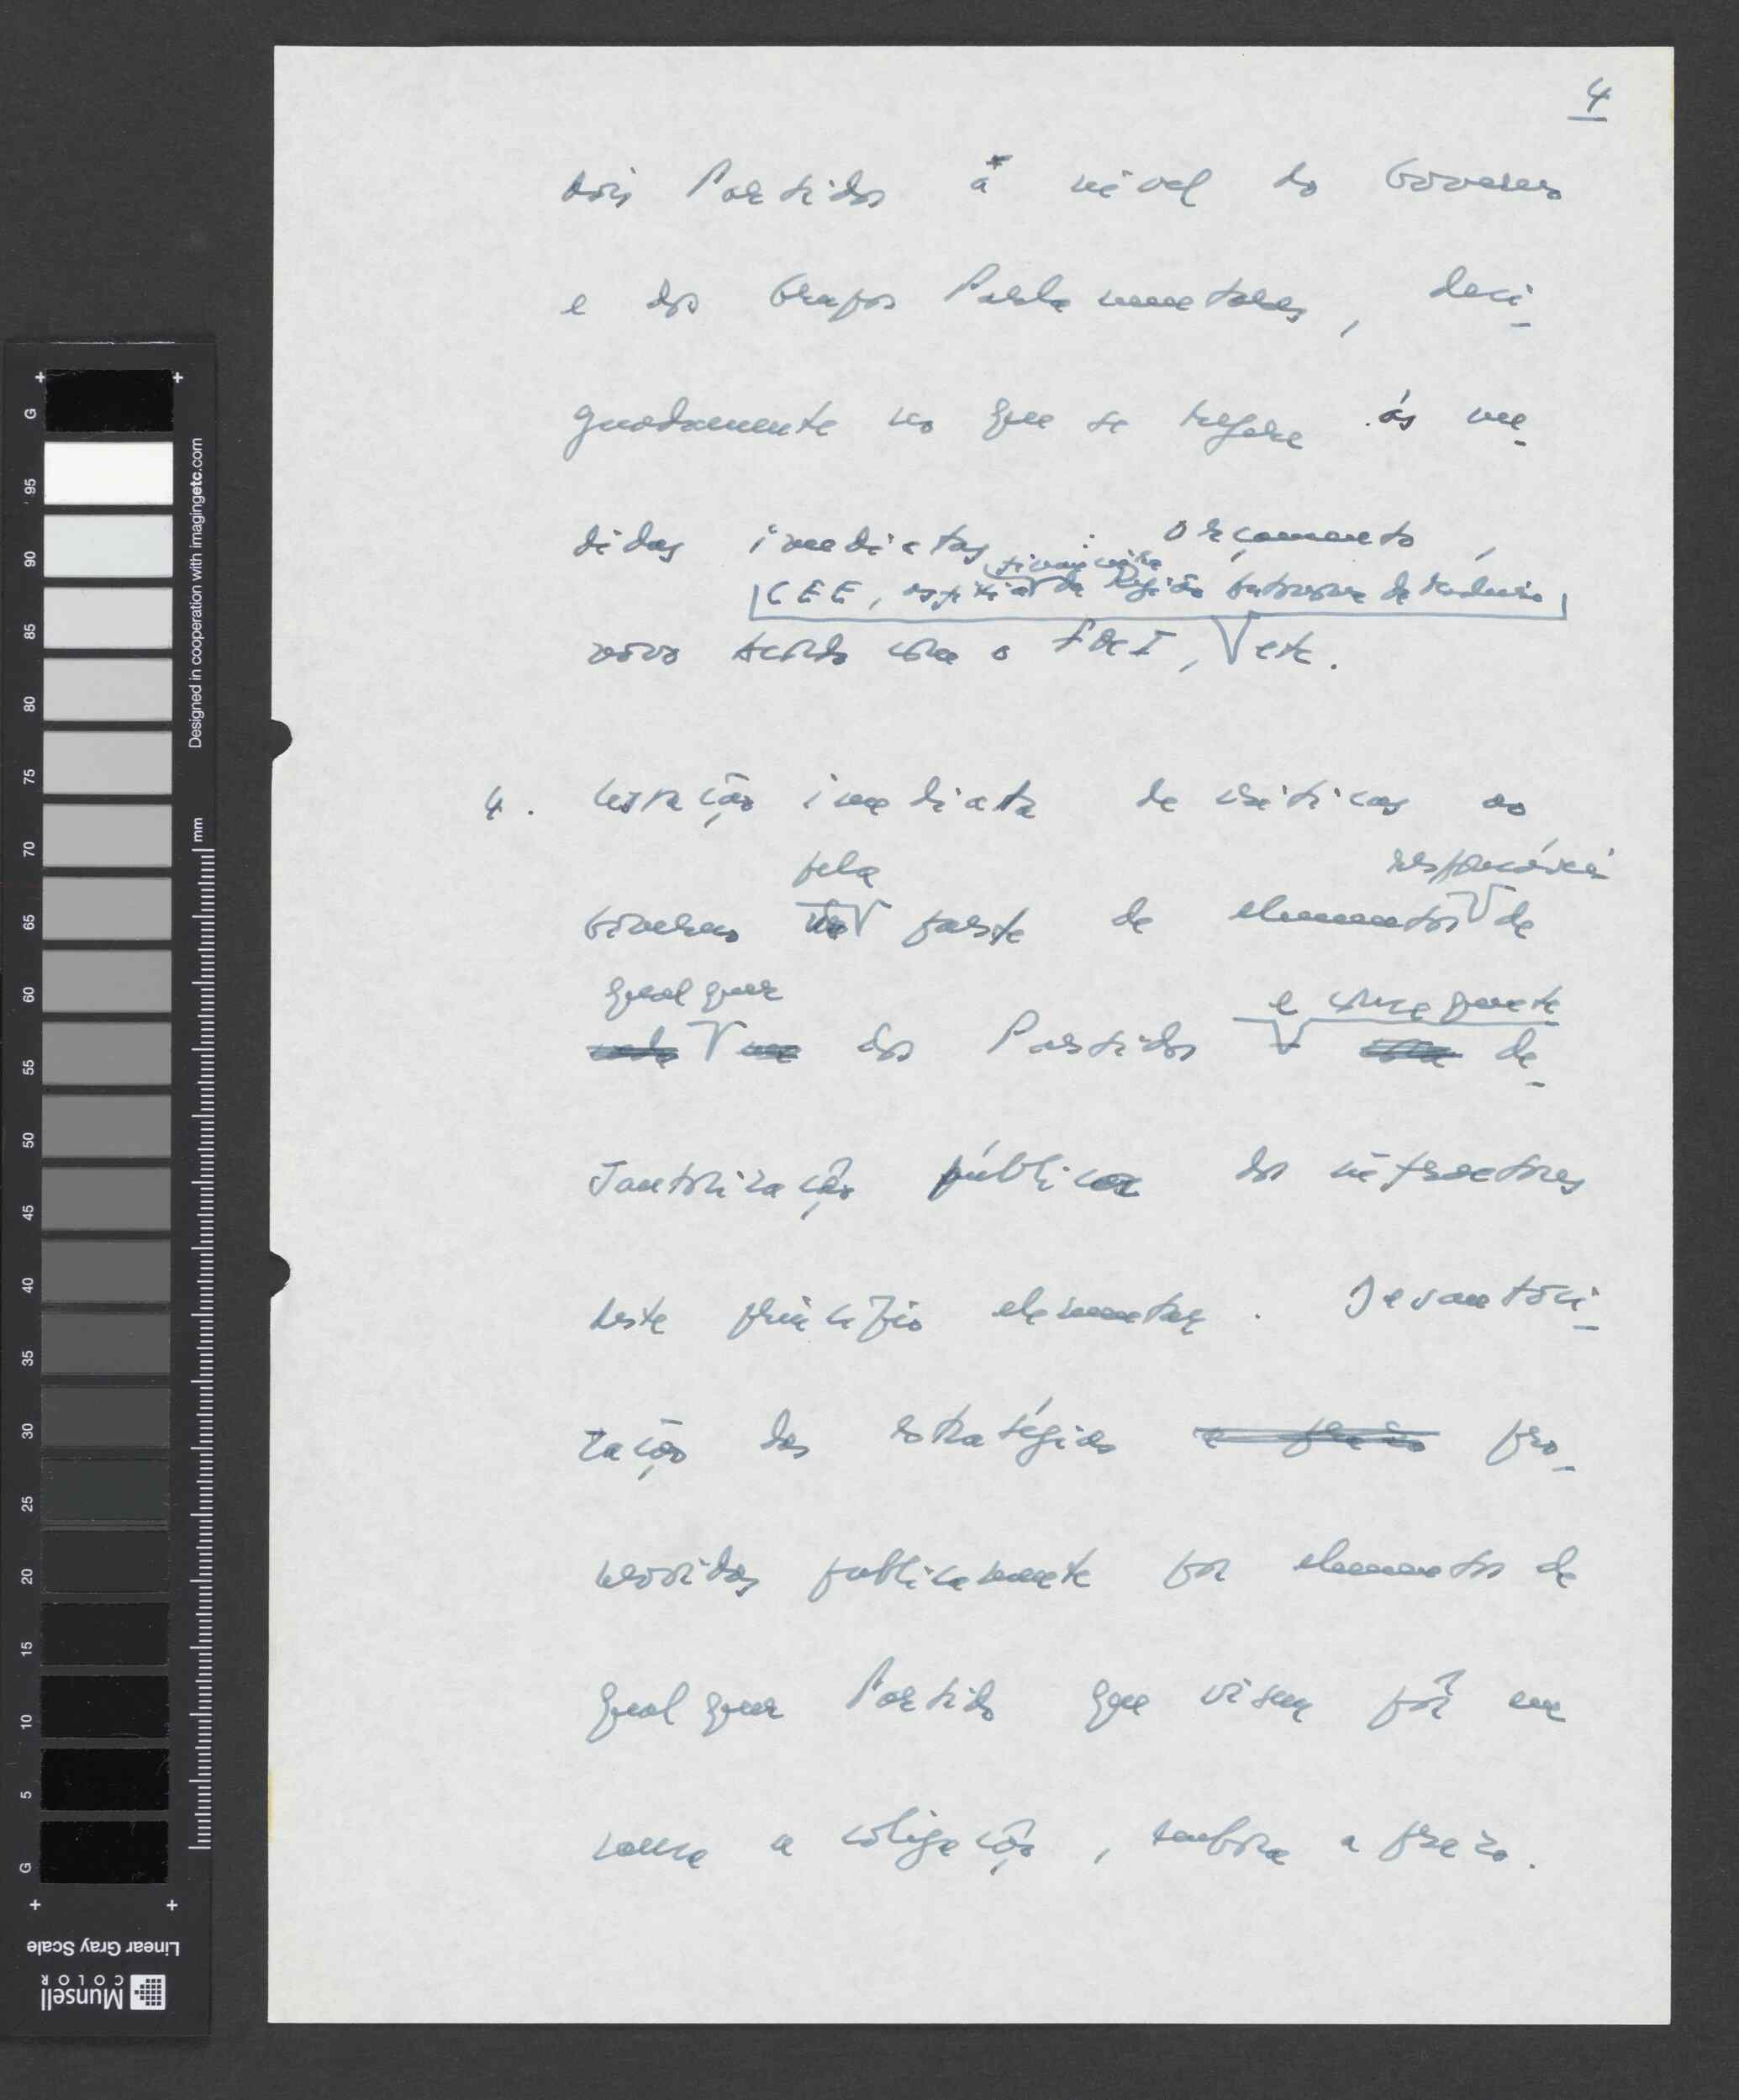 4
dois Partidos a nível do Governo
e dos Grupos Parlamentares, desi-
gnadamente no que se refere ás me-
didas imediatas: orçamento,
financeira
CEE, da Região Autónoma da Madeira
novo acordo com o FMI, etc.
4. Cessação imediata de críticas ao
pela responsáveis
Governo parte de elementos de
qualquer e consequente
dos Partidos de-
sautorização pública dos infractores
deste princípio elementar. Desautori-
zação das estratégias e prazo pro-
movidas publicamente por elementos de
qualquer Partido que visem pôr em
causa a coligação, embora a prazo.
G 95 90 85 80 75 70 65 60 55 50 45 40 35 30 25 20 15 10 5 G
mm
Designed in cooperation with imagingetc.com
Linear Gray Scale
Munsell
COLOR